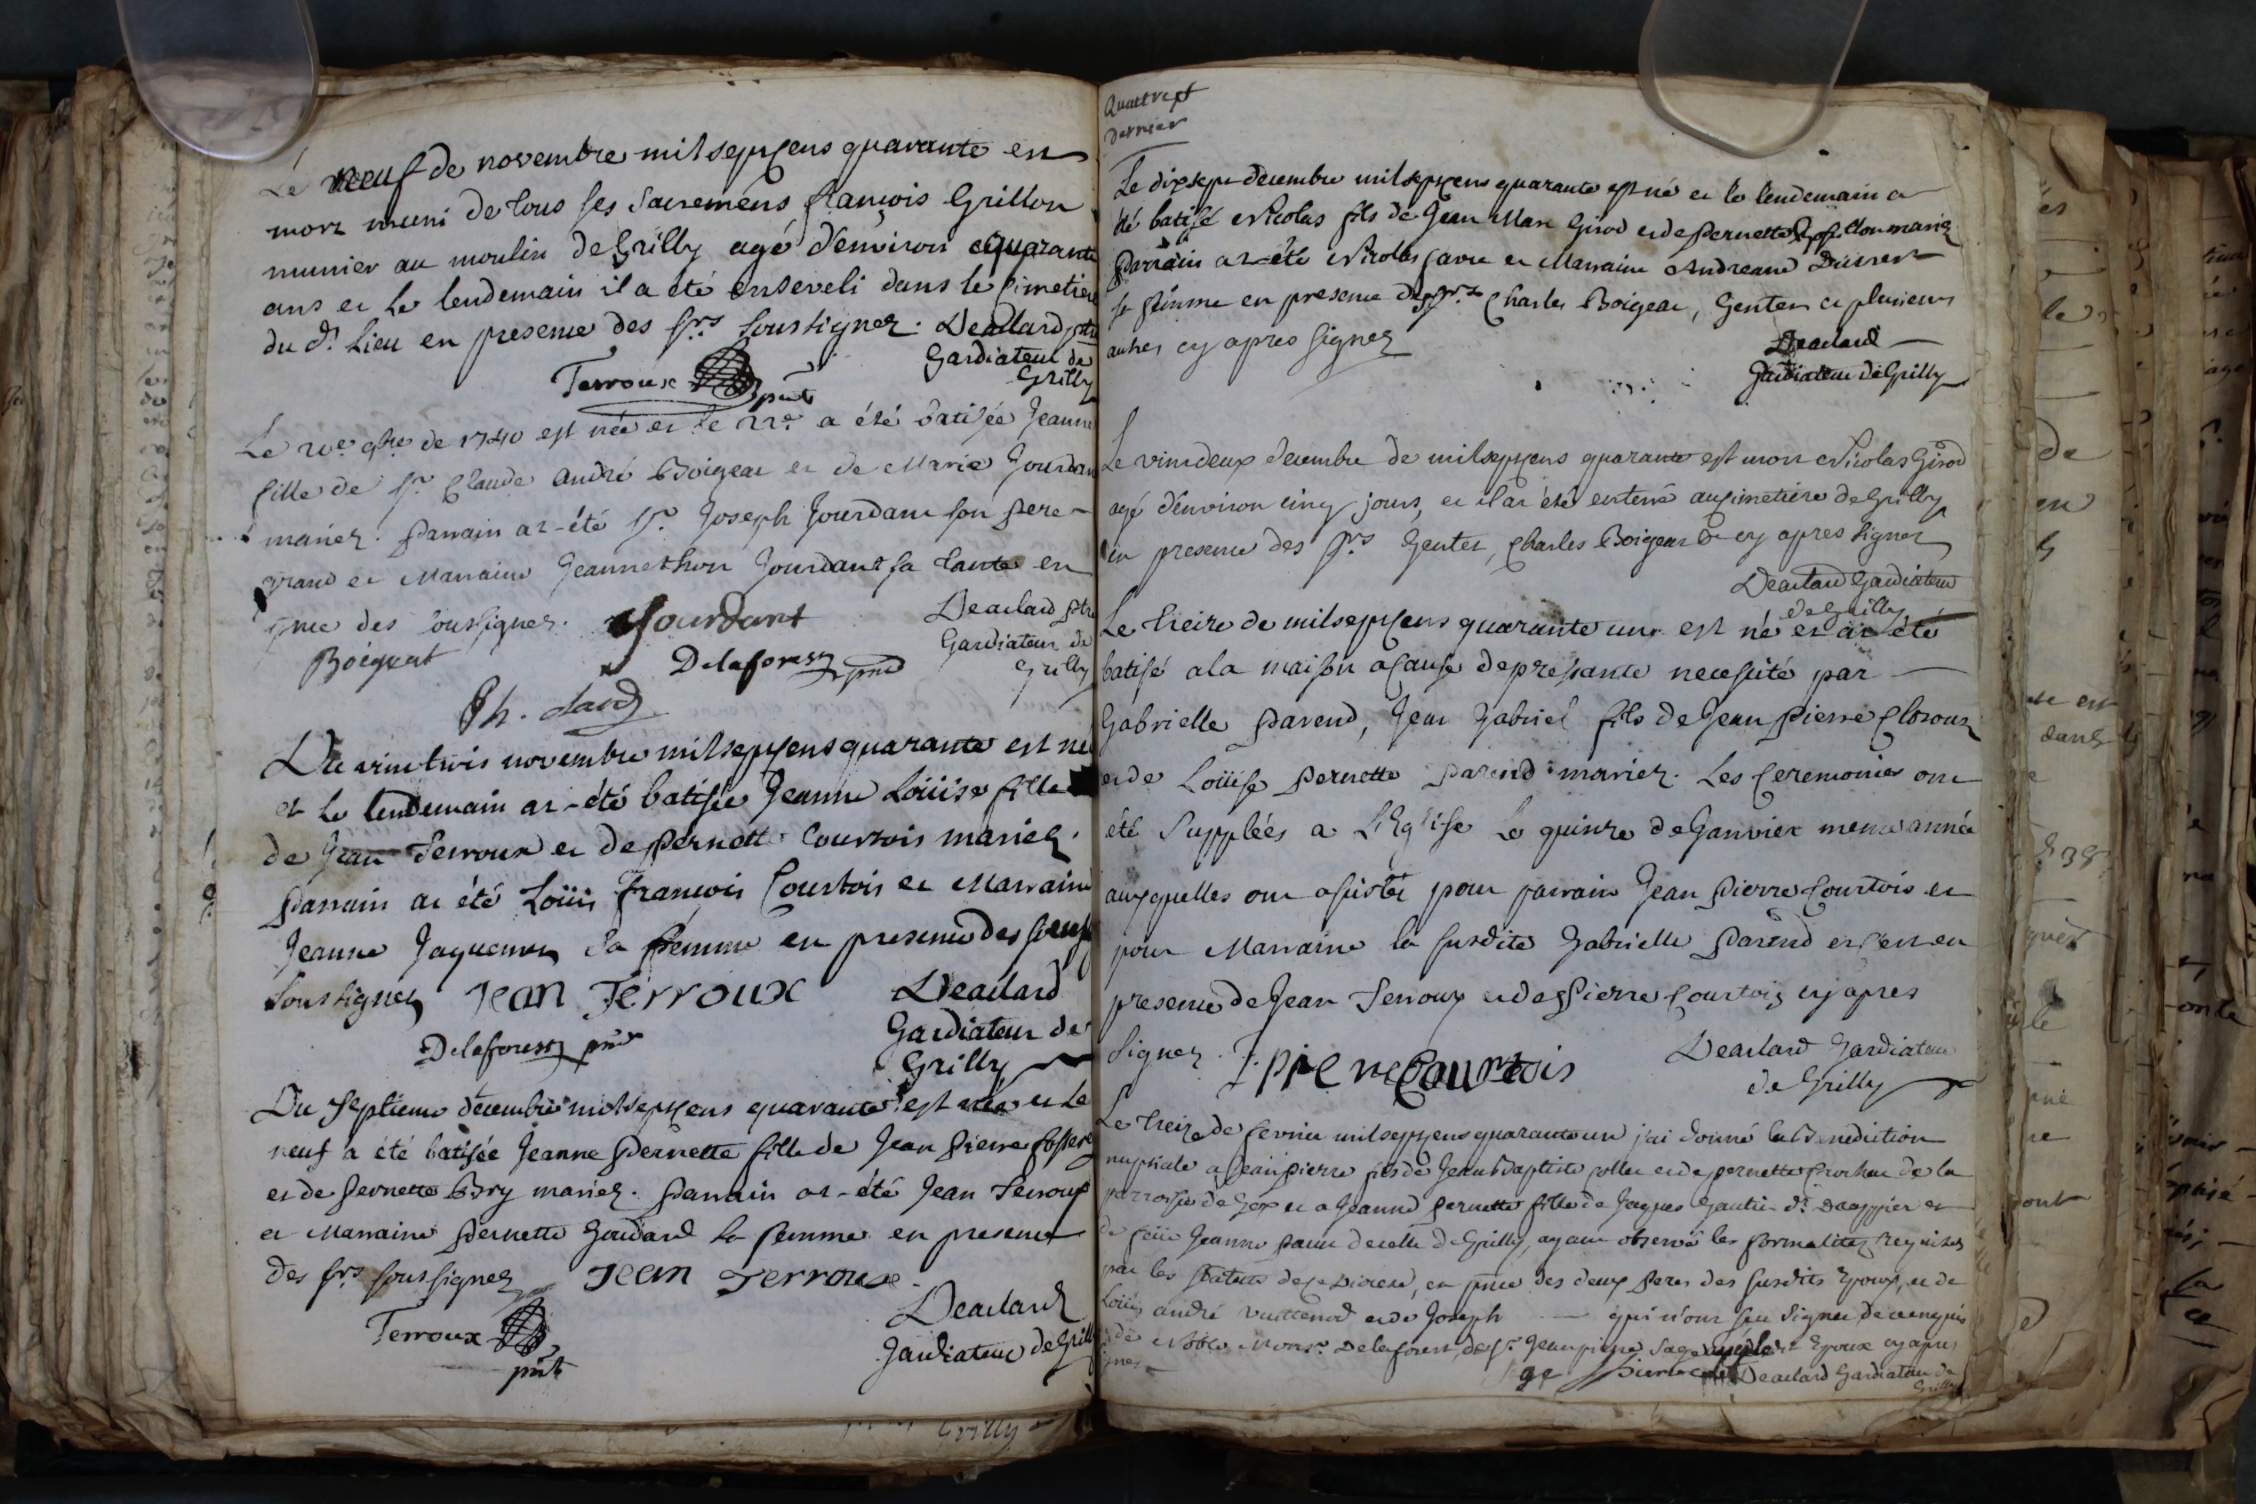 Le neuf de novembre mil sept cens quarante est
mort muni de tous ses sacremens françois Grillon
munier au moulin de Grilly agé d'environ quarante
ans et le lendemain il a été enseveli dans le cimetiere
du d.t Lieu en presence des Srs soussignez. Deaclard ptre
Gardiateur de
Grilly
Terroux pnt
Le 9bre de 1740 est née et le a été batisée Jeanne
fille de Sr. Claude André Boigeat et de Marie Jourdan
mariez. Parrain at-été Sr. Joseph Jourdant son Pere
grand et Marraine Jeannethon Jourdant sa tante en
pnce des soussignez. Jourdant Deaclard ptre
Gardiateur de
Grilly
Boégeat Delaforest pnt
Du vint trois novembre mil sept cens quarante est née
et le lendemain at-été batisée Jeanne Loüise fille
de Jean Terroux et de Pernette Courtois mariez.
Parrain at été Loüis françois Courtois et Marraine
Jeanne Jaquemet sa femme en presence des
soussignez Jean Terroux Deaclard
Gardiateur de
Grilly
Delaforest pnt
Du septieme decembre mil sept cens quarante est née et le
neuf a été batisée Jeanne Pernette fille de Jean Pierre
et de Pernette Bry mariez. Parrain at-été Jean Terroux
et Marraine Pernette Goudard sa femme en presence
des Srs soussignez Jean Terroux
Deaclard
Gardiateur de Grilly
Terroux
pnt
Dernier
Le dix sept decembre mil sept cens quarante est né et le lendemain a
été batisé Nicolas fils de Jean Marc Girod et de Pernette mariez
Parrain at-été Nicolas favre et Marraine Andreane
sa femme en presence des Srs Charles Boigeat, Gentet et plusieurs
autres cy apres signez
Deaclard
Gardiateur de Grilly
Le vint deux decembre de mil sept cens quarante est mort Nicolas Girod
agé d'environ cinq jours, et il at été enterré au cimetiere de Grilly
en presence des Srs Gentet, Charles Boigeat & cy apres signez
Deaclard Gardiateur
de Grilly
Le treize de mil sept cens quarante un est né et at été
batisé a la maison a cause de pressante necessité par
Gabrielle Parend, Jean Gabriel fils de Jean Pierre
et de Loüise Pernette Parend mariez. Les Ceremonies ont
été supplées a L'Eglise le quinze de Ganvier meme année
auxquelles ont assisté pour parrain Jean Pierre Courtois et
pour Marraine la susdite Gabrielle Parend et c'est en
presence de Jean Terroux et de Pierre Courtois cy apres
signez. J. pierre Courtois Deaclard Gardiateur
de Grilly
Le treize de fevrier mil sept cens quarante un j'ai donné la Benediction
nuptiale a Jean Pierre fils de Jean Baptiste et de pernette de la
parroisse de Gex et a Jeanne Pernette fille de Jaques Gautier et
de feüe Jeanne de celle de Grilly, ayant observé les formalitez requises
par les statuts de ce Diocese, en pnce des deux Peres des susdits Epoux, et de
Loüis andré et de Joseph qui n'ont sçu signer de ce enquis
de Noble Monsr. Delaforest, de Sr. Jean pierre Epoux cy apres
Deaclard Gardiateur de
Grilly